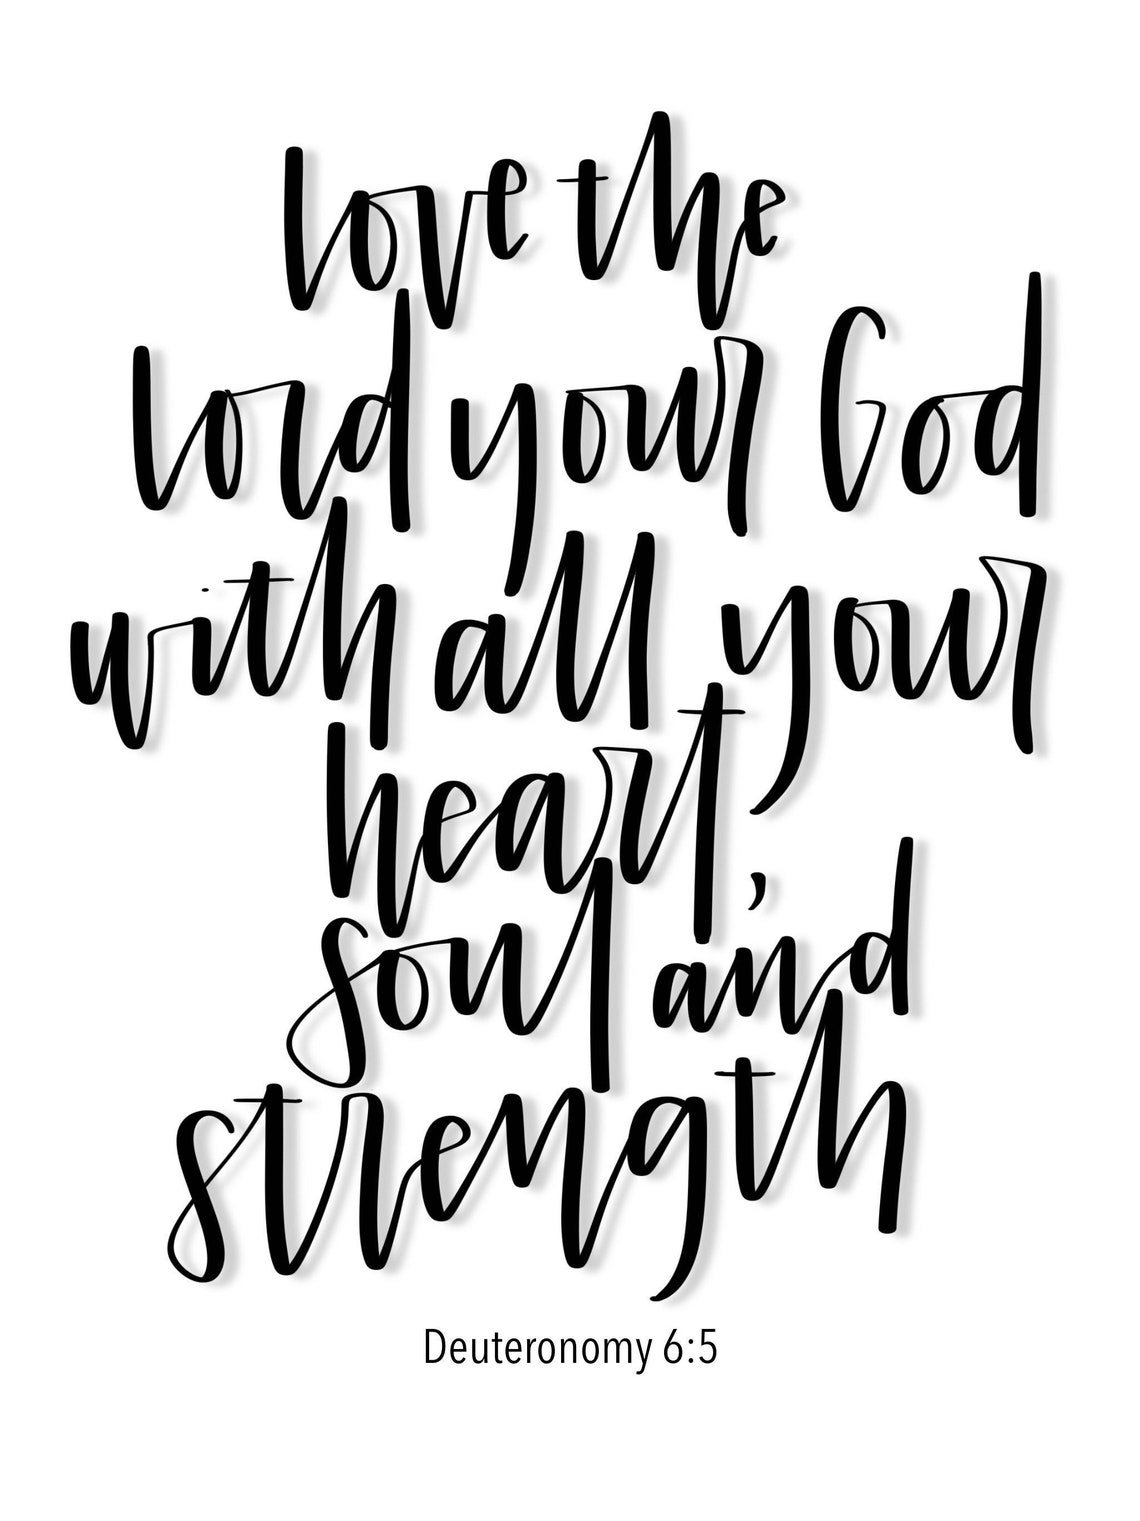 love the
lord your God
with all your
heart,
soul and
strength
Deuteronomy 6:5